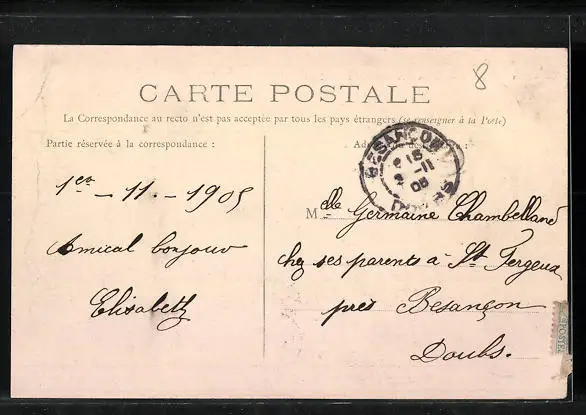 8
CARTE POSTALE
La Correspondance au recto n'est pas acceptée par tous les pays étrangers (se renseigner à la Poste)
Partie réservée à la correspondance :
BESANÇON
15
2 -11
05
1er - 11 - 1905
Amical bonjour
Elisabeth
Mdlle Germaine Chambelland
chez ses parents à St Fergeux
près Besançon
Doubs.
POSTE